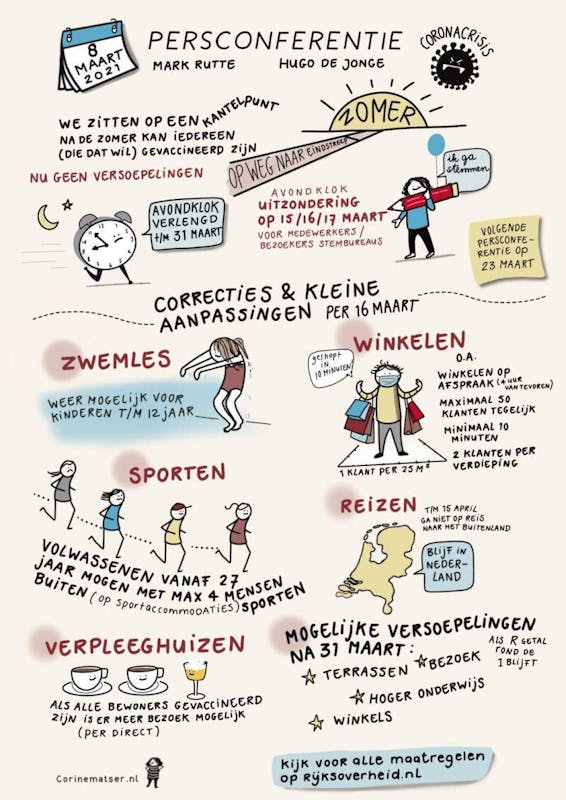 8
MAART
2021
PERSCONFERENTIE
MARK RUTTE HUGO DE JONGE
CORONACRISIS
WE ZITTEN OP EEN KANTELPUNT
NA DE ZOMER KAN IEDEREEN
(DIE DAT WIL) GEVACCINEERD ZIJN
NU GEEN VERSOEPELINGEN
ZOMER
OP WEG NAAR EINDSTREEP
AVONDKLOK
VERLENGD
T/M 31 MAART
AVONDKLOK
UITZONDERING
OP 15/16/17 MAART
VOOR MEDEWERKERS/
BEZOEKERS STEMBUREAUS
ik ga
stemmen
VOLGENDE
PERSCONFE-
RENTIE OP
23 MAART
CORRECTIES & KLEINE
AANPASSINGEN PER 16 MAART
ZWEMLES
WEER MOGELIJK VOOR
KINDEREN T/M 12 JAAR
WINKELEN
geshopt in
10 minuten
O.A.
WINKELEN OP
AFSPRAAK (4 UUR
VAN TEVOREN)
MAXIMAAL 50
KLANTEN TEGELIJK
MINIMAAL 10
MINUTEN
2 KLANTEN PER
VERDIEPING
1 KLANT PER 25 M²
SPORTEN
VOLWASSENEN VANAF 27
JAAR MOGEN MET MAX 4 MENSEN
BUITEN (op sportaccommodaties) SPORTEN
REIZEN
T/M 15 APRIL
GA NIET OP REIS
NAAR HET BUITENLAND
BLIJF IN
NEDER-
LAND
VERPLEEGHUIZEN
ALS ALLE BEWONERS GEVACCINEERD
ZIJN IS ER MEER BEZOEK MOGELIJK
(PER DIRECT)
MOGELIJKE VERSOEPELINGEN
NA 31 MAART:
ALS R GETAL
ROND DE
1 BLIJFT
TERRASSEN
BEZOEK
HOGER ONDERWIJS
WINKELS
Corinematser.nl
kijk voor alle maatregelen
op rijksoverheid.nl